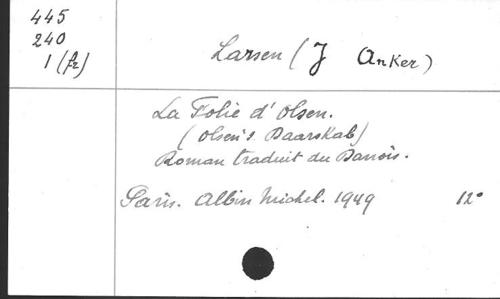 445
240
1 (fr)
Larsen (J Anker)
La Folie d'Olsen.
(Olsen's Daarskab)
Roman traduit du Danois.
Paris. Albin Michel. 1949 12°